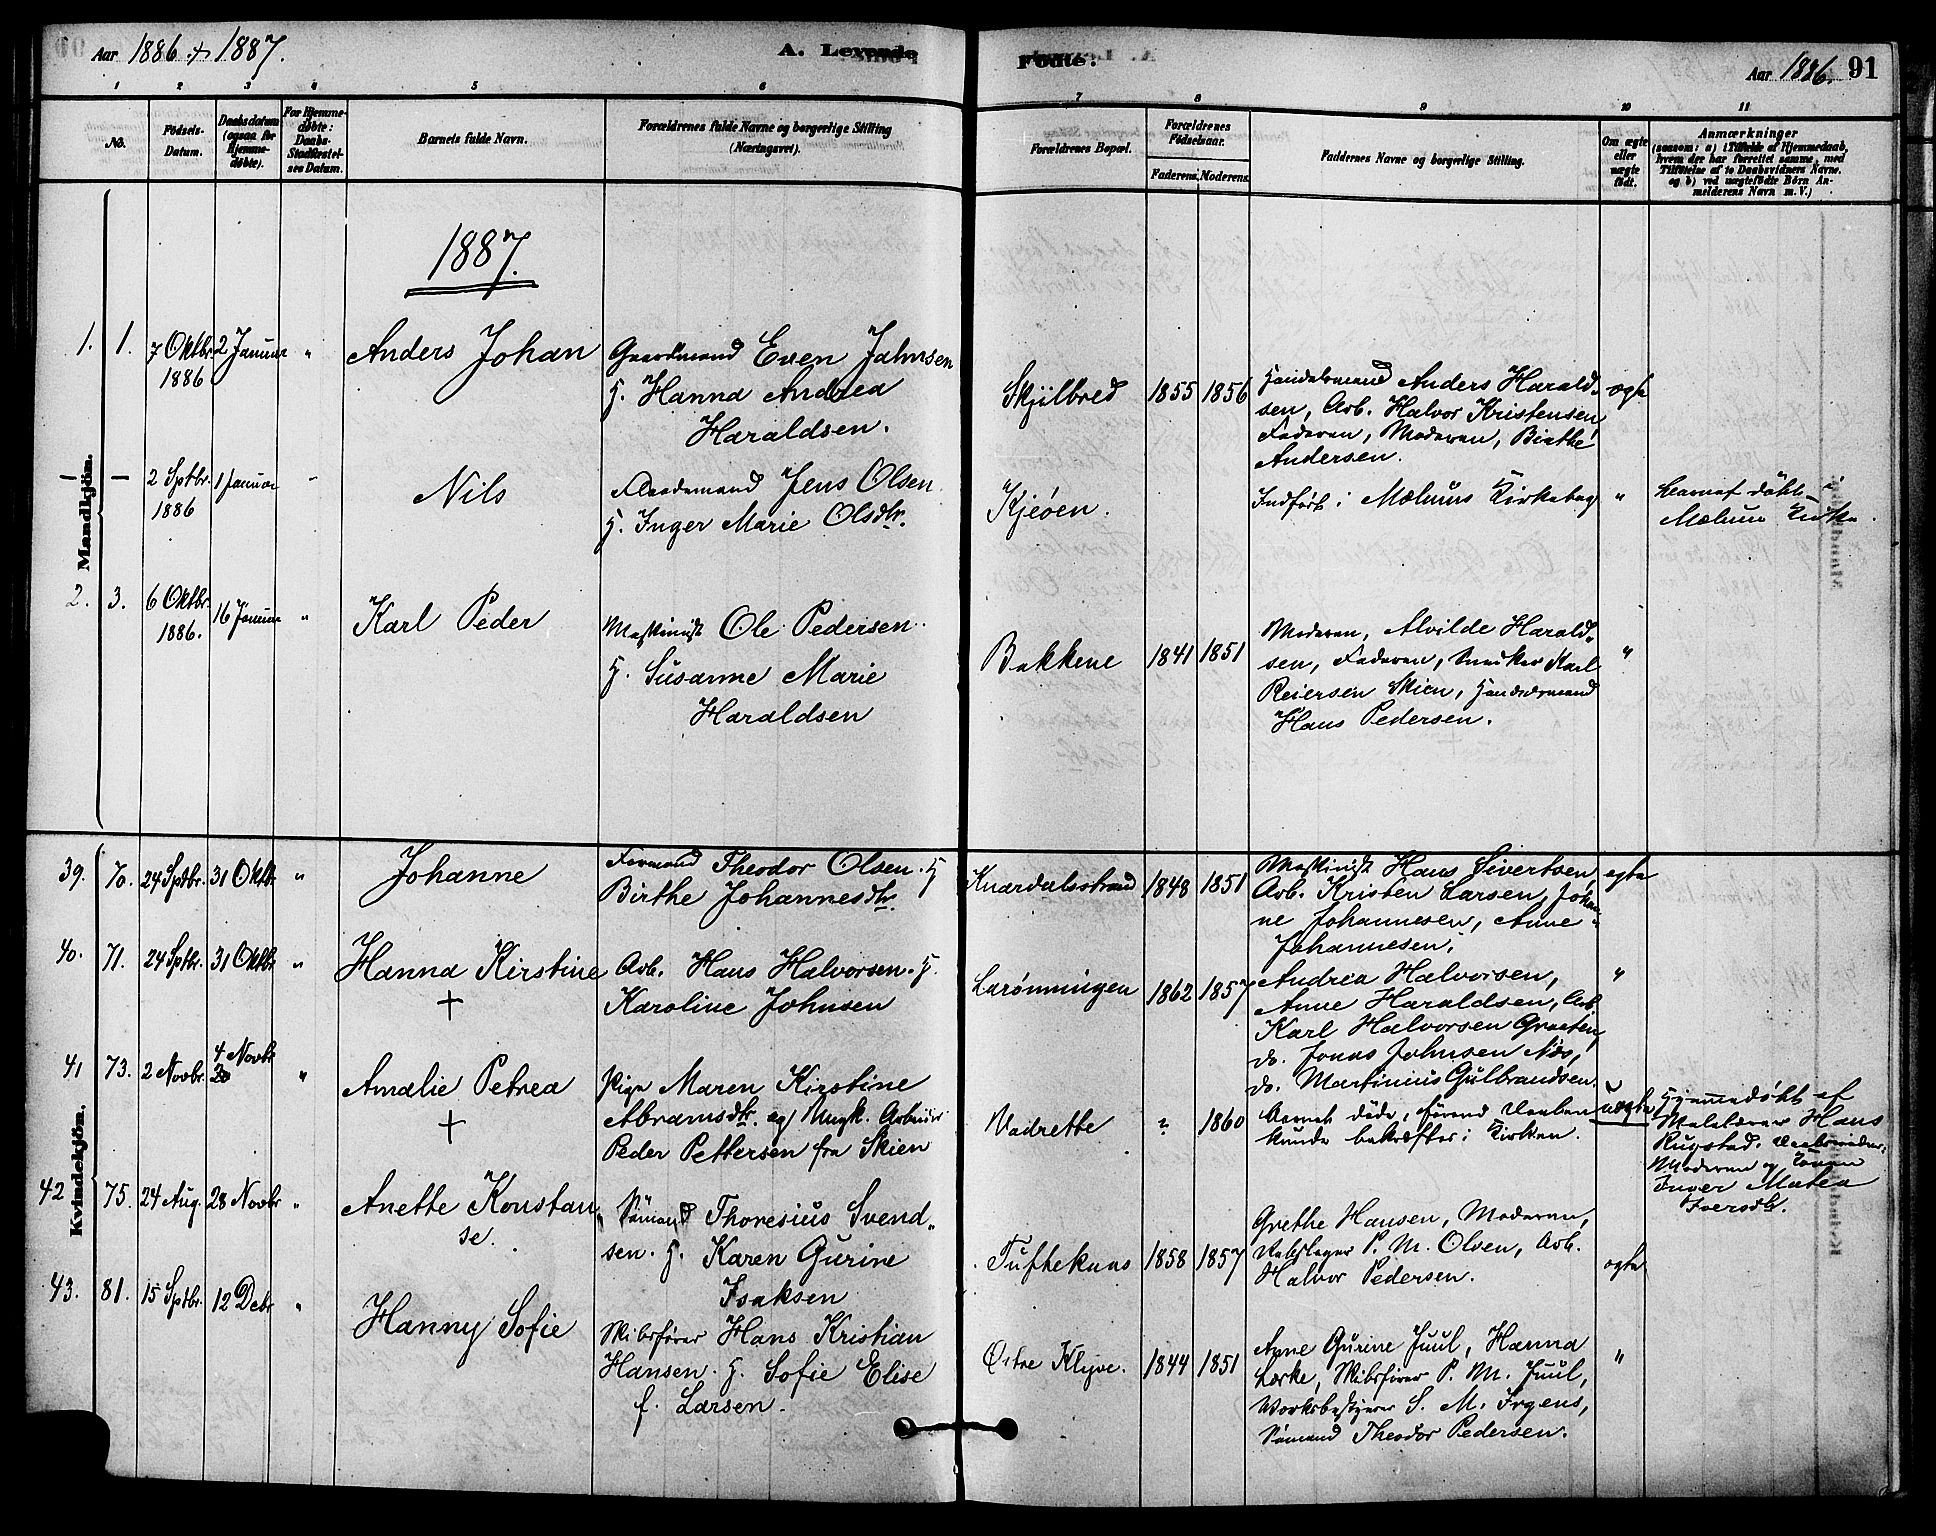 Aar 1886 + 1887.
A. Levende
Fødte.
Aar 1886.
91
1 2 3 4 5 6
7 8 9 10 11
No.
Fødsels-
Datum.
Daabsdatum
(ogsaa for
Hjemme-
døbte).
For Hjemme-
døbte:
Daabs-
Stadfæstel-
ses Datum.
Barnets fulde Navn.
Forældrenes fulde Navne og borgerlige Stilling
(Næringsvei).
Forældrenes Bopæl.
Forældrenes
Fødselsaar.
Faderens. Moderens.
Faddernes Navne og borgerlige Stilling.
Om ægte
eller
uægte
født.
Anmærkninger
(saasom: a) i Tilfælde af Hjemmedaab,
hvem der har forrettet samme, med
Tilføielse af to Daabsvidners Navne.
og b) ved uægtefødte Børn An-
melderens Navn m. V.)
Mandkjön.
1887.
1. 1. 7 Oktbr. 2 Januar " Anders Johan
1886
Gaardmand Even Jahnsen
H. Hanna Andrea
Haraldsen.
Skjilbred 1855 1856
Handelsmand Anders Harald-
sen, Arb. Halvor Kristensen,
Faderen, Moderen, Birthe
Andersen.
ægte
— — 2 Sptbr. 1 Januar " Nils
1886
Flaademand Jens Olsen
H. Inger Marie Olsdtr.
Kjeøen.
Indført i Mælums Kirkebog "
Barnet døbt i
Mælum Kirke.
2. 3. 6 Oktbr. 16 Januar " Karl Peder
1886.
Maskinist Ole Pedersen
H. Susanne Marie
Haraldsen
Bakkene 1841 1851
Moderen, Alvilde Harald-
sen, Faderen, Snedker Karl
Reiersen Skien, Handelsmand
Hans Pedersen.
"
Kvindekjön.
39. 70. 24 Sptbr. 31 Oktbr. " Johanne
Formand Theodor Olsen. H
Birthe Johannesdtr.
Knardalsstrand 1848 1851
Maskinist Hans Sivertsen,
Arb. Kristen Larsen, Johan-
ne Johannesen, Anne
Johannesen.
ægte
40. 71. 24 Sptbr. 31 Oktbr " Hanna Kirstine
+
Arb. Hans Halvorsen. H.
Karoline Johnsen
Larønningen 1862 1857
Andrea Halvorsen,
Anne Haraldsen, Arb.
Karl Halvorsen Graaten,
do. Jonas Johnsen Næs,
do. Martinius Gulbrandsen.
"
41 73. 2 Novbr. 4 Novbr " Amalie Petrea
+
Pige Maren Kirstine
Abramsdtr. og Ungk. Arbeider
Peder Pettersen fra Skien
Vadrette ? 1860
Barnet døde, førend Daaben
kunde bekræftes i Kirken.
uægte
Hjemmedøbt af
Malelærer Hans
Rugstad. Daabsvidner:
Moderen og Konen
Inger Mathea
Iversdtr.
42 75. 24 Aug. 28 Novbr " Anette Konstan-
se.
Sømand Thoresius Svend-
sen. H. Karen Gurine
Isaksen
Tuftekaas 1858 1857
Grethe Hansen, Moderen,
Rebslager P. M. Olsen, Arb.
Halvor Pedersen.
ægte
43. 81. 15 Sptbr. 12 Debr " Hanny Sofie
Skibsfører Hans Kristian
Hansen. H. Sofie Elise
f. Larsen.
Østre Klyve. 1844 1851
Anne Gurine Juul, Hanna
Lærke, Skibsfører P. M. Juul,
Værksbestyrer S. M. Irgens,
Sømand Theodor Pedersen.
"